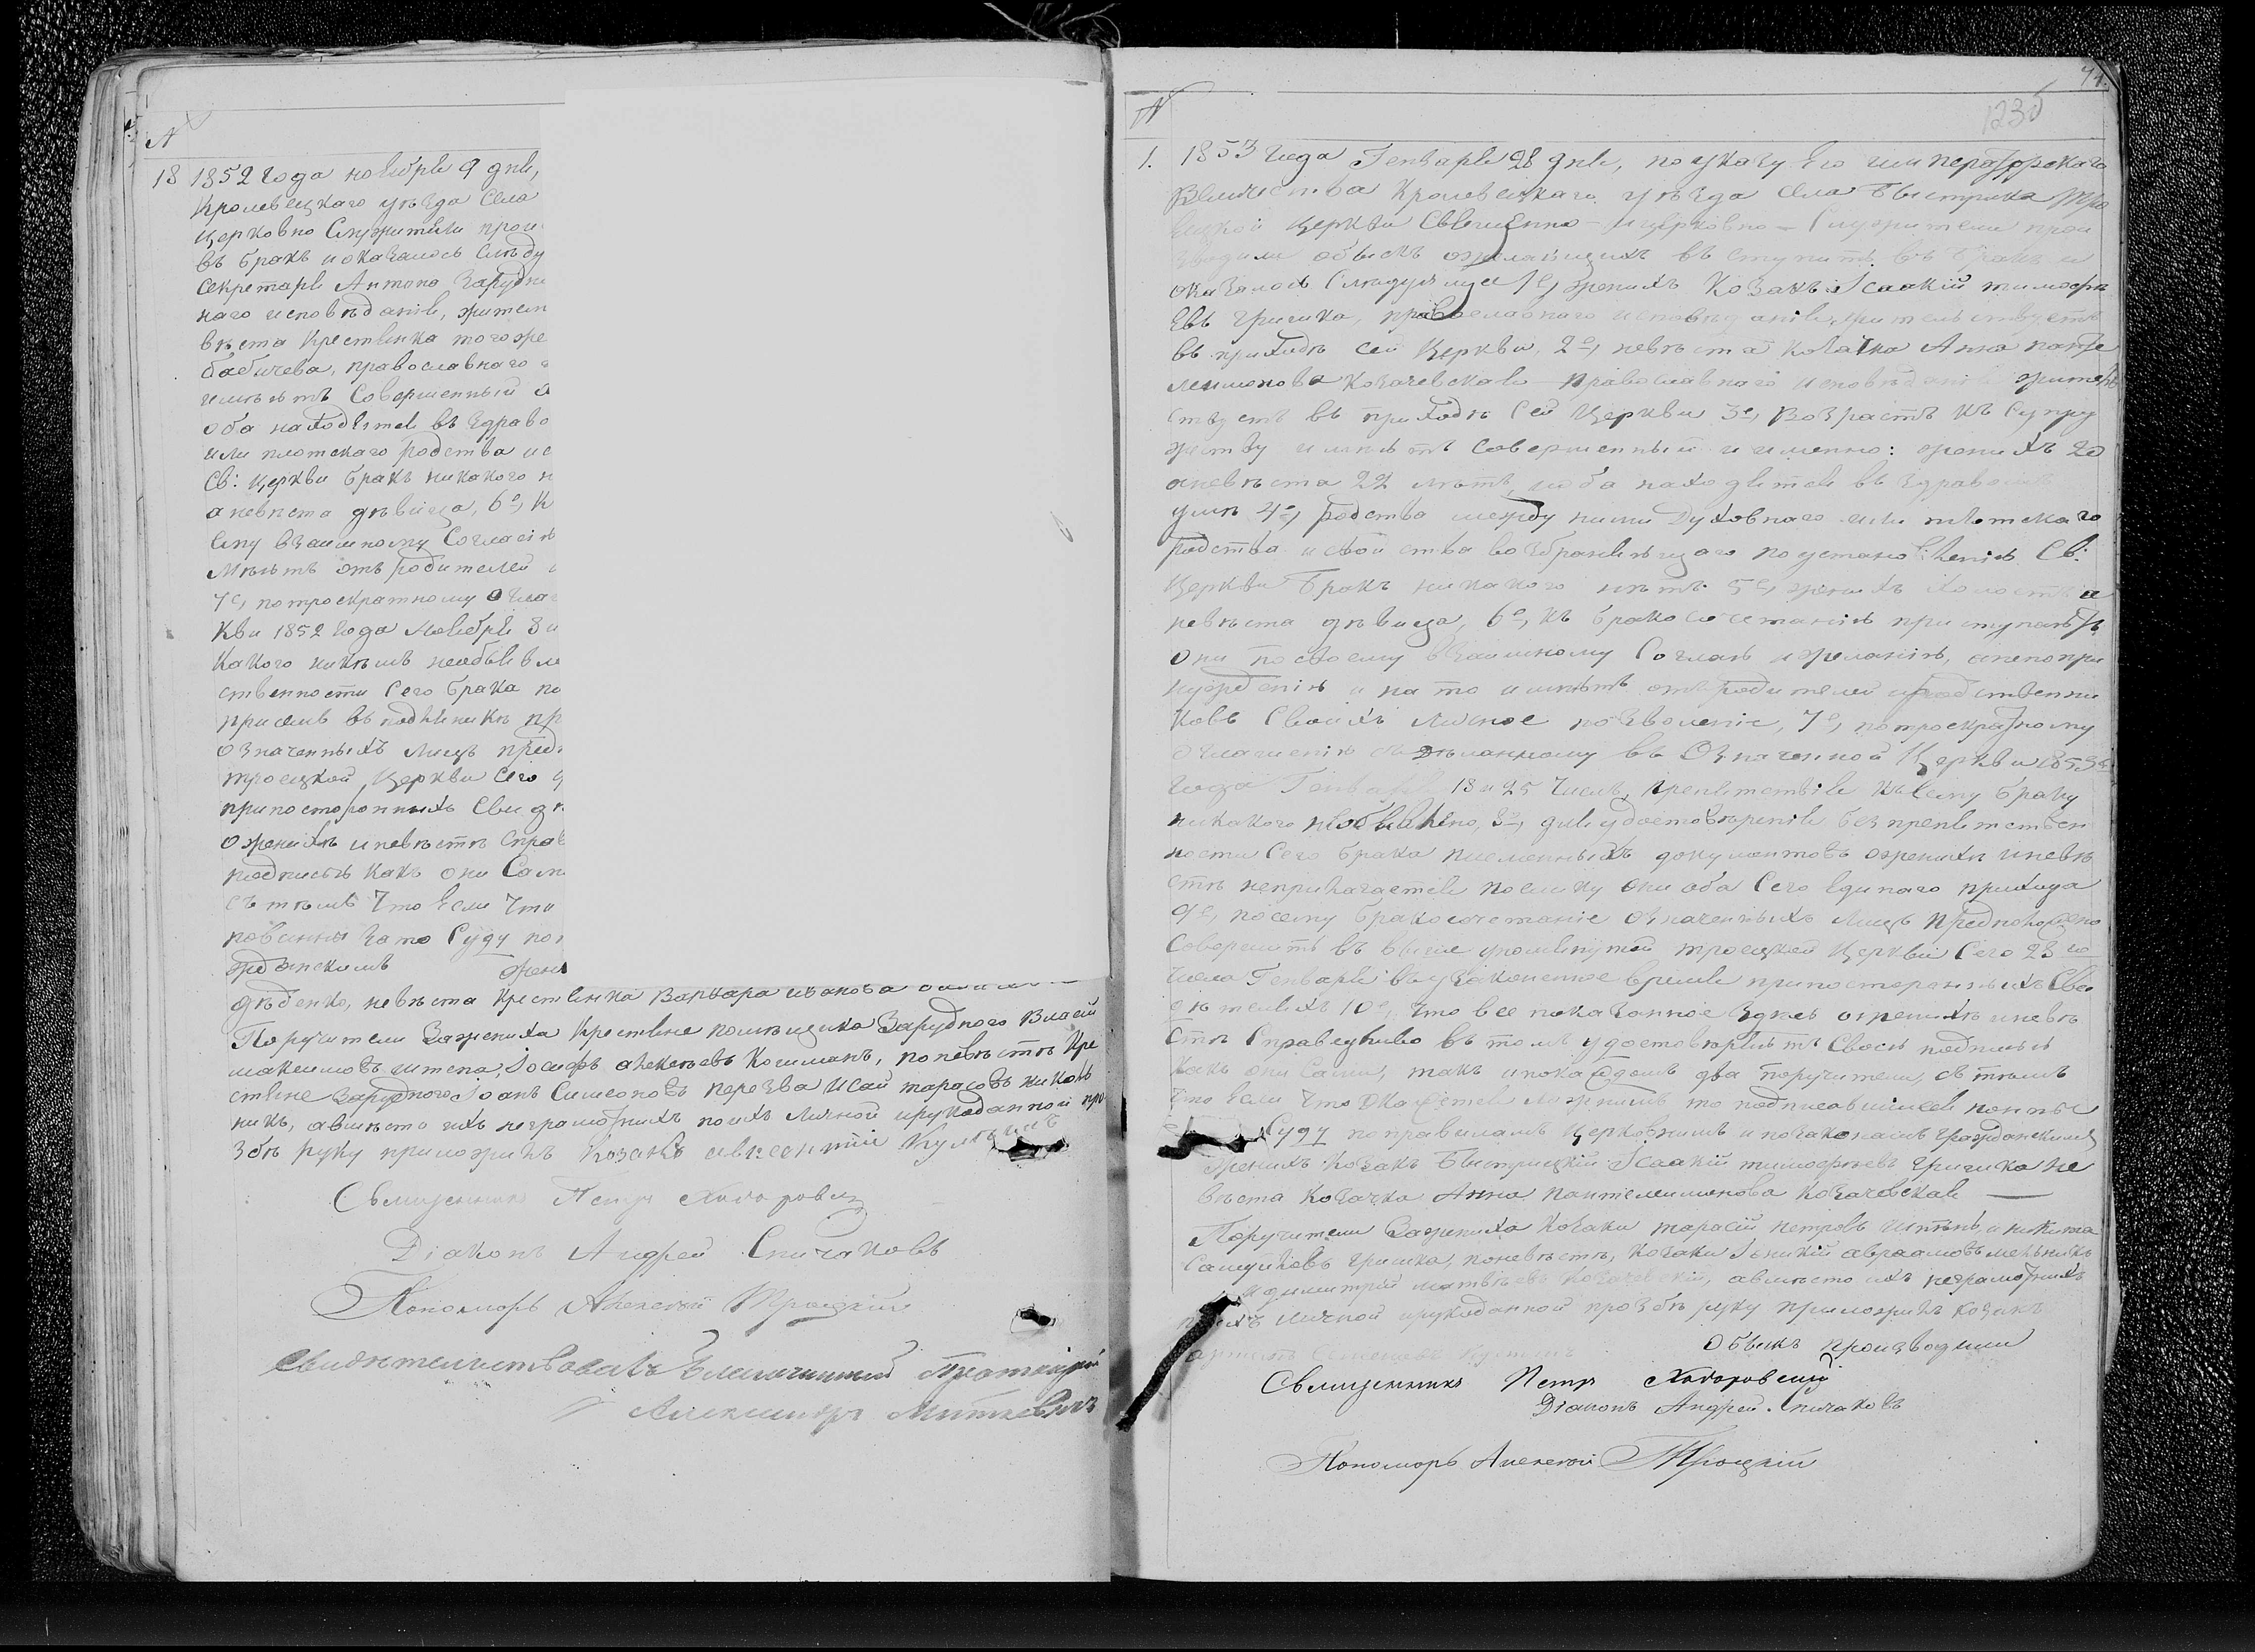 N
18 1852 года ноября 9 дня,
Кролевецкаго уѣзда Села
церковно Служители прои
въ бракъ и оказалось Слѣду
Секретаря Антона Зарудн
наго исповѣданія, жител
вѣста Крестьянка тогоже
бабичева, православнаго
имѣютъ Совершенный
оба находятся въ здраво
или плотскаго родства и с
Св: церкви бракъ никакого н
а невѣста дѣвица, 6е, К
ему взаимному Согласію
Имѣютъ отъ родителей
7е, потроекратному Оглаш
кви 1852 года Ноября 8 и
какого никѣмъ необъявле
ственности Сего брака по
присемъ въ подлинникѣ пр
означенныхъ лицъ предп
троецкой Церкви Сего 9
припостороннихъ Свидѣ
ожених­ѣ и невѣстѣ Справ
подписью Какъ они Сами
Сътѣмъ что Если что
повинны зато Суду поп
жданскимъ жени
дѣденко, невѣста Крестьянка Варвара иванова
Поручители Зажениха Крестьяне помѣщика Зарудного Власій
максимовъ штепа, Іосифъ алексѣевъ Кошманъ, поневѣстѣ Кре
стьяне Зарудного Іоанъ Симеоновъ перезва Исай тарасовъ николь
никъ, авмѣсто ихъ неграмотныхъ поихъ личной ирукоданной про
збѣ руку приложилъ Козакъ авксентій
Священникъ Петръ Ходоровскій
Діаконъ Андрей Спичаковъ
Пономарь Алексей Троцкій
Свидѣтельствовалъ Благочинный Протоіерей
Александръ Миткевичъ
N
71.
1235
1. 1853 года Генваря 28 дня, поуказу Его императорскаго
Величества Кролевецкаго уѣзда Села Быстрика Тро
ецкой церкви Священно-ицерковно-Служители прои
зводили обыскъ ожелающихъ вступить въ бракъ и
оказалось Слѣдующее 1е, женихъ Козакъ Ісаакій тимофѣ
евъ гришка, православнаго исповѣданія, жительствуетъ
въ приходѣ сей Церкви, 2е, невѣста козачка Анна панте
леимонова Козачевская православнаго исповѣданія жители
ствуетъ въ приходѣ Сей Церкви 3е, Возрастъ къ Супру
жеству имѣютъ Совершенный и именно: женихъ 20
аневѣста 22 лѣтъ, иоба находятся въ здравомъ
умѣ 4е, родства между ними Духовнаго или плотскаго
родства и свойства возбраняющаго поустановленію Св:
Церкви Бракъ никакого нѣтъ 5е, женихъ холостъ а
невѣста дѣвица, 6е, къ бракосочетанію приступаютъ
Они посвоему взаимному Согласію ижеланію, анепопри
нужденію и на то имѣютъ отъ родителей и родственни
ковъ Своихъ личное позволеніе, 7е, потроекратному
Оглашенію сдѣланному въ Означенной Церкви 1853го
года Генваря 18 и 25 Числъ, препятствія къ Сему браку
никакого необъявлено, 8е, дляудостовѣренія безпрепятствен
ности Сего брака писменныхъ документовъ ожених­ѣ иневѣ
стѣ неприлагается поелику Они оба Сего Единаго прихода
9е, посему бракосочетаніе означенныхъ лицъ Предположено
Совершить въ выше упомянутой троецкой Церкви Сего 28го
числа Генваря въузаконенное время припостороннихъ Сви
дѣтеляхъ 10е, Что все показанное здѣсь оженихѣ иневѣ
стѣ Справедливо въ томъ удостовѣряютъ Своею подписью
Какъ они Сами, такъ ипокаждомъ два поручители, сътѣмъ
что Если что Окажется ложнымъ то подписавшіеся повинны
Суду поправиламъ Церковнымъ и позаконамъ гражданскимъ
Женихъ Козакъ Быстрицкій Ісаакій тимофѣевъ гришка не
вѣста Козачка Анна пантелеимонова Козачевская
Поручители Зажениха Козаки тарасій петровъ и никита
Самуйловъ гришка, поневѣстѣ, Козаки Іаникій авраамовъ мельникъ
идимитрій матвѣевъ Козачевскій, авмѣсто ихъ неграмотныхъ
поихъ личной ирукоданной прозбѣ руку приложилъ козакъ
Обыскъ производили
Священникъ Петръ Ходоровскій
Діаконъ Андрей Спичаковъ
Пономарь Алексей Троцкій